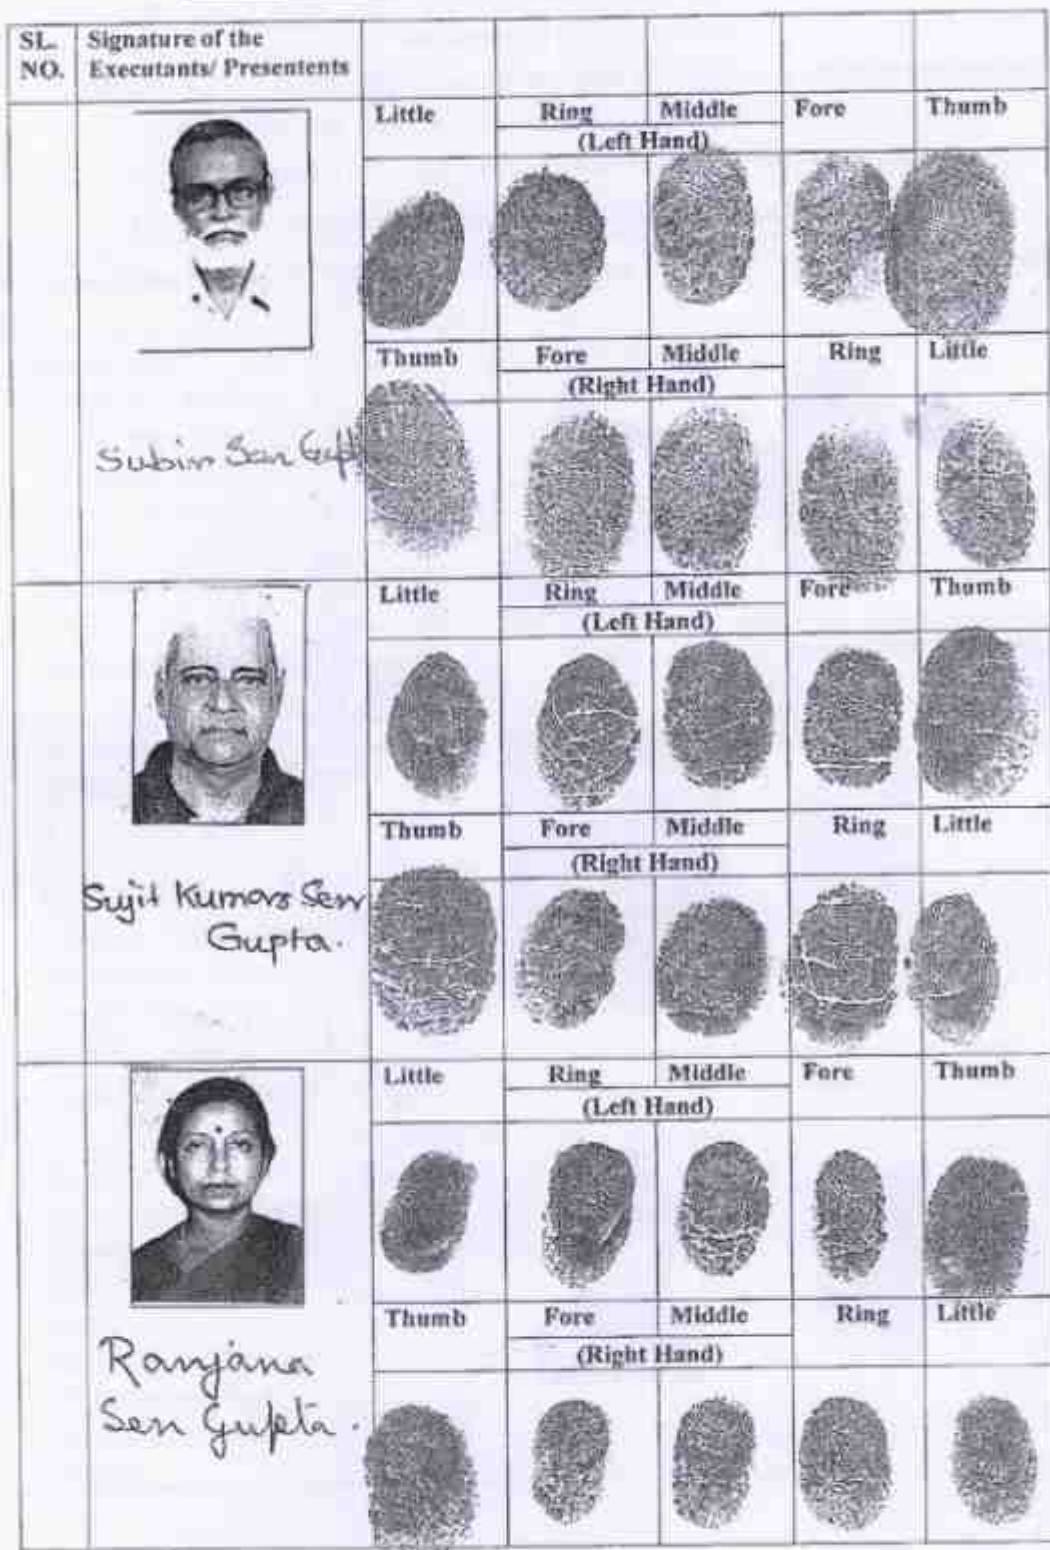 SL. NO. Signature of the Executants/ Presentents
Little Ring Middle Fore Thumb
(Left Hand)
Thumb Fore Middle Ring Little
(Right Hand)
Subir Sen Gupta
Little Ring Middle Fore Thumb
(Left Hand)
Thumb Fore Middle Ring Little
(Right Hand)
Sujit Kumar Sen
Gupta.
Little Ring Middle Fore Thumb
(Left Hand)
Thumb Fore Middle Ring Little
(Right Hand)
Ranjana
Sen Gupta.